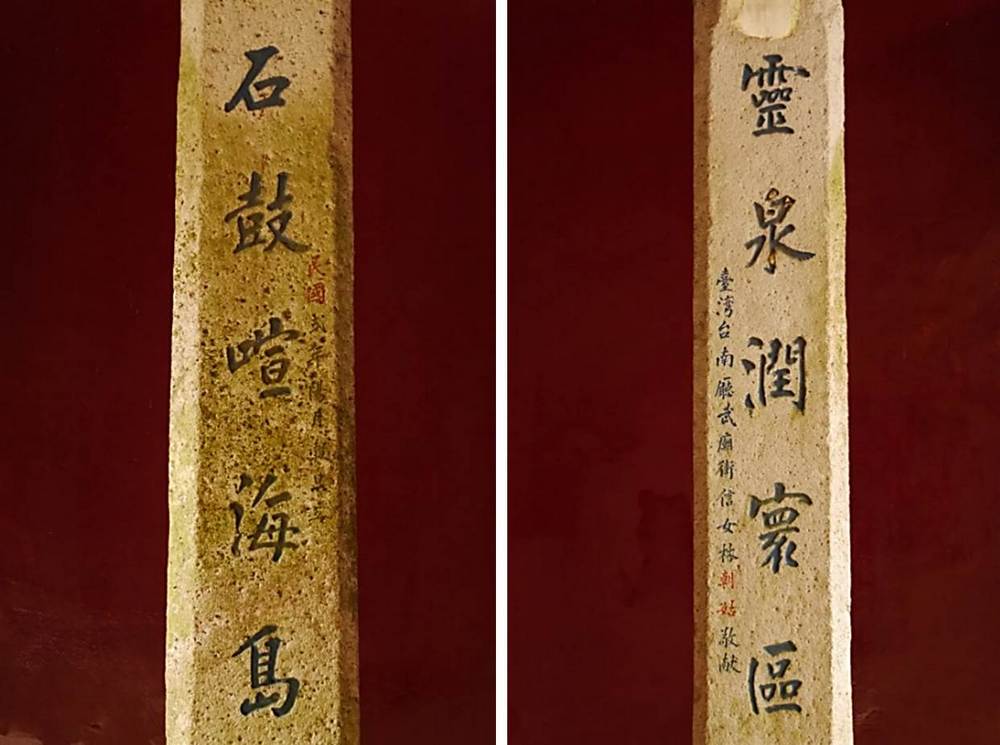 靈泉潤寰區
臺灣台南廳武廟街信女
敬献
石鼓喧海島
民國
年